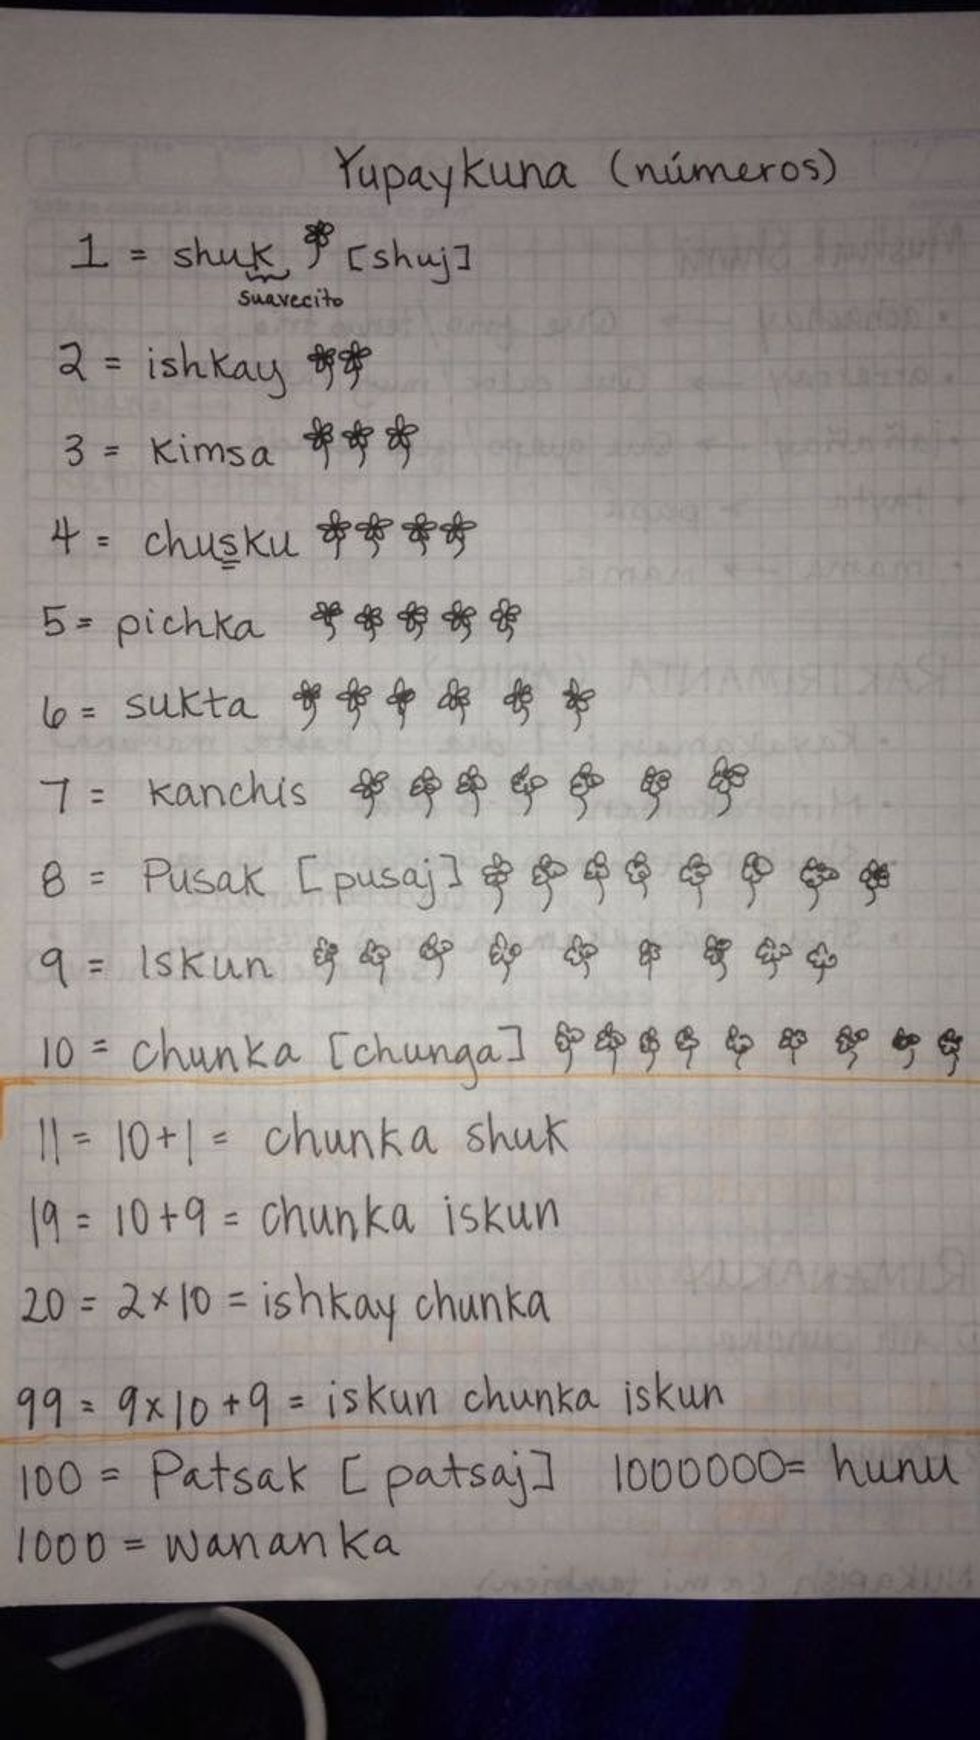 Yupaykuna (números)
1 = shuk [shuj]
suavecito
2 = ishkay
3 = kimsa
4 = chusku
5 = pichka
6 = sukta
7 = kanchis
8 = Pusak [pusaj]
9 = Iskun
10 = chunka [chunga]
11 = 10+1 = chunka shuk
19 = 10+9 = chunka iskun
20 = 2x10 = ishkay chunka
99 = 9x10+9 = iskun chunka iskun
100 = Patsak [patsaj] 1000000= hunu
1000 = wananka